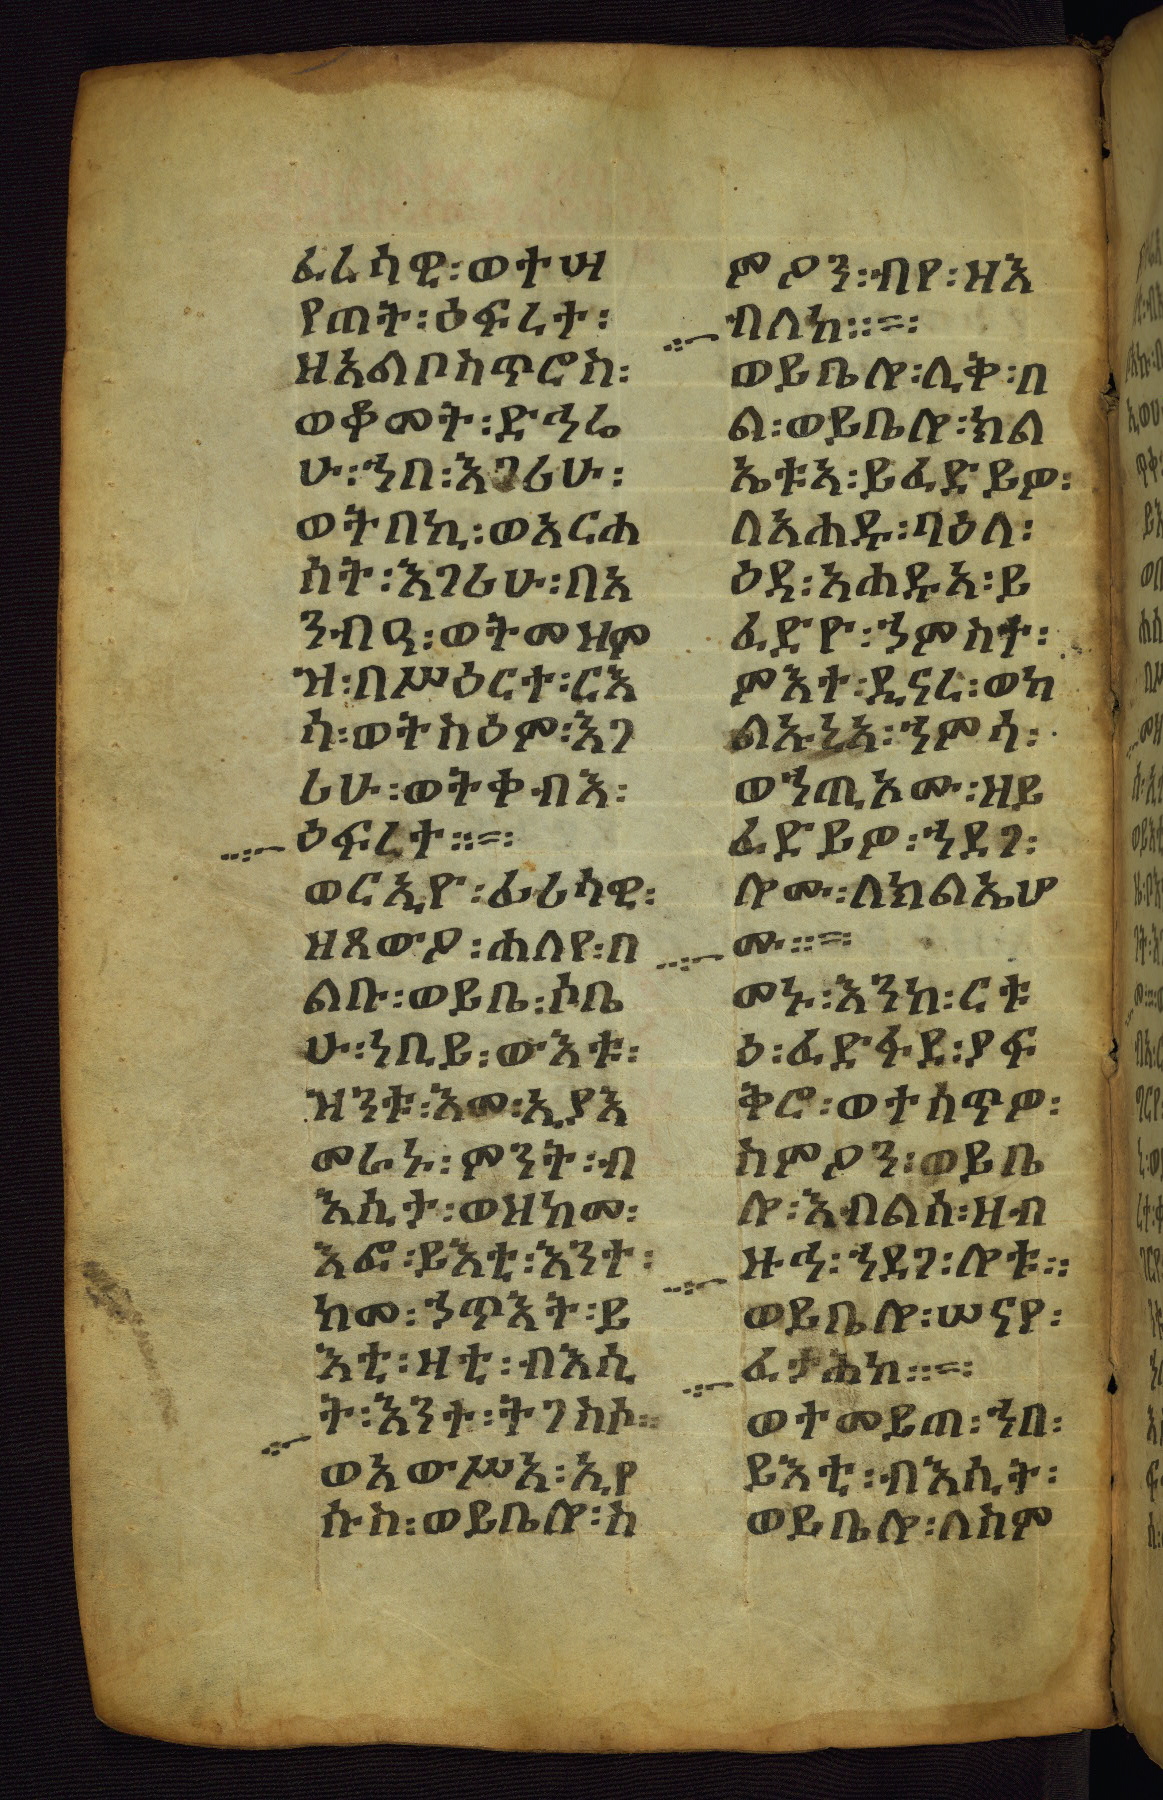 ፈሪሳዊ፡ወተሣ
የጠት፡ዕፍረተ፡
ዘአልቦስጥሮስ፡
ወቆመት፡ድኅሬ
ሁ፡ኀበ፡እገሪሁ፡
ወትበኪ፡ወአርሐ
ሰት፡እገሪሁ፡በአ
ንብዓ፡ወትመዝም
ዝ፡በሥዕርተ፡ርእ
ሳ፡ወትስዕም፡እገ
ሪሁ፡ወትቀብእ፡
ዕፍረተ።=፡
ወርእዮ፡ፈሪሳዊ፡
ዘጸውዖ፡ሐለየ፡በ
ልቡ፡ወይቤ፡ሶቤ
ሁ፡ነቢይ፡ውእቱ፡
ዝንቱ፡እመ፡ኢያእ
መራኑ፡ምንት፡ብ
እሲት፡ወዝከመ፡
እፎ፡ይእቲ፡እንተ፡
ከመ፡ኀጥእት፡ይ
እቲ፡ዛቲ፡ብእሲ
ት፡እንተ፡ትገስሶ።
ወአውሥአ፡ኢየ
ሱስ፡ወይቤሎ፡ስ
ምዖን፡ብየ፡ዘእ
ብለከ።=፡
ወይቤሎ፡ሊቅ፡በ
ል፡ወይቤሎ፡ክል
ኤቱአ፡ይፈድይዎ፡
ለአሐዱ፡ባዕለ፡
ዕዳ፡አሐዱአ፡ይ
ፈድዮ፡ኀምስቱ፡
ምእተ፡ዲናረ፡ወካ
ልኡኒአ፡ኀምሳ፡
ወኀጢኦሙ፡ዘይ
ፈድይዎ፡ኀደገ፡
ሎሙ፡ለክልኤሆ
ሙ።=፡
መኑ፡እንከ፡ርቱ
ዕ፡ፈድፋደ፡ያፍ
ቅሮ፡ወተሰጥዎ፡
ስምዖን፡ወይቤ
ሎ፡እብልሰ፡ዘብ
ዙኅ፡ኀደገ፡ሎቱ።
ወይቤሎ፡ሠናየ፡
ፈታሕከ።=፡
ወተመይጠ፡ኀበ፡
ይእቲ፡ብእሲት፡
ወይቤሎ፡ለስም